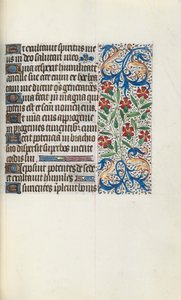 Et exultavit spiritus me
us in deo salutari
Quia respexit humilitate
ancille sue ecce enim ex hoc bea
tam me dicent oēs generacōēs
Quia fecit michi magna qui
potens est et sanctum nomen eius
Et mia eius a progenie
in progenies timentibus eum
Fecit potenciā in brachio
suo dispersit superbos mente
cordis sui
Deposuit potentes de sede
et exaltavit humiles
Esurientes implevit bonis